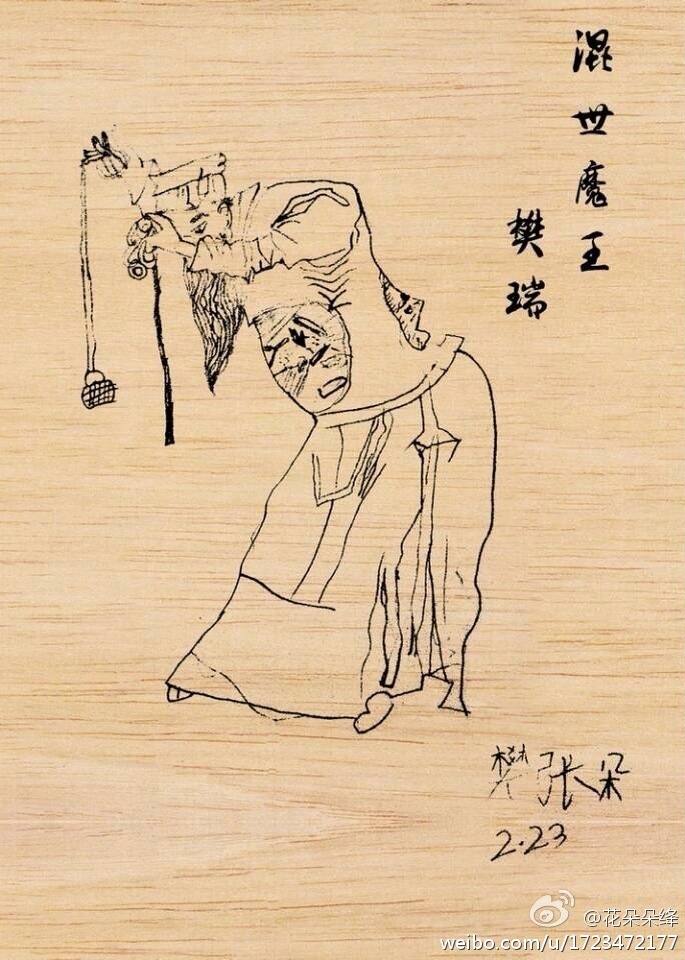 混世魔王
樊瑞
樊张朵
2.23
@花朵朵绛
weibo.com/u/1723472177